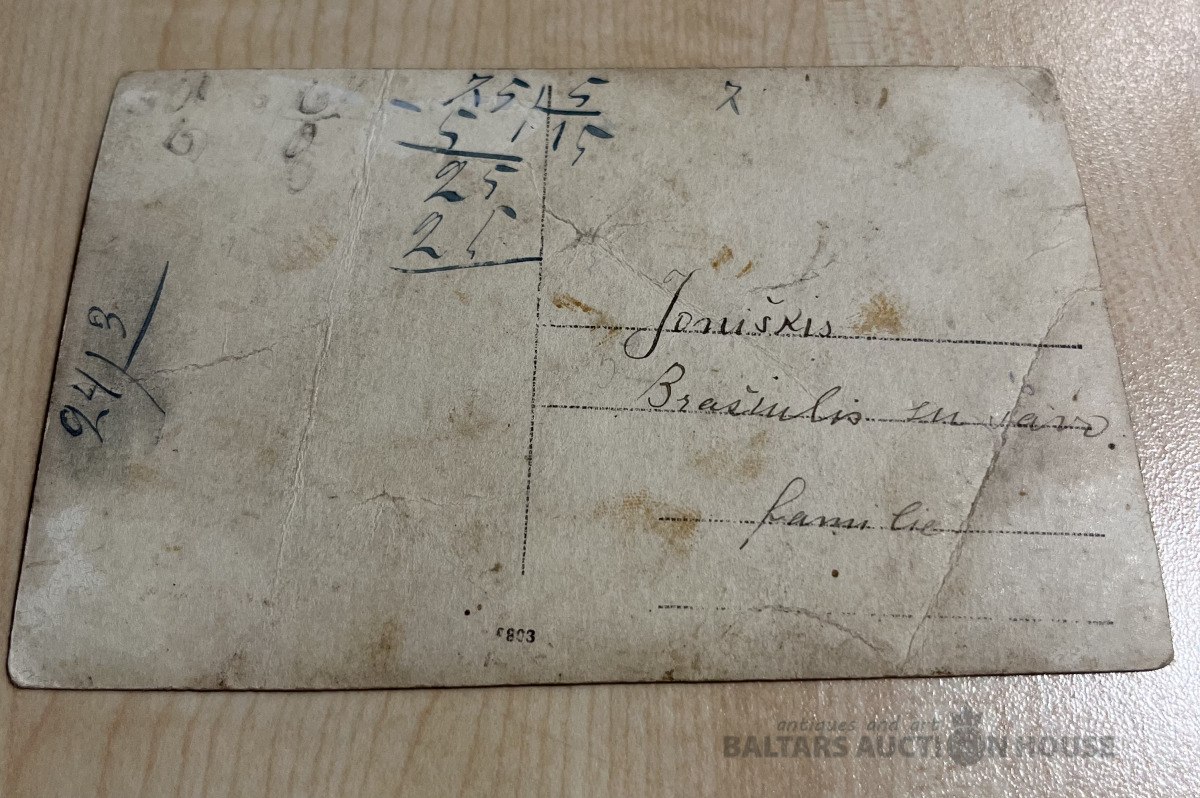 75 | 5
- 5 | 15
25
25
7
24 | 3
Joniškis
Brašiulis un
familie
antiques and art
BALTARS AUCTION HOUSE